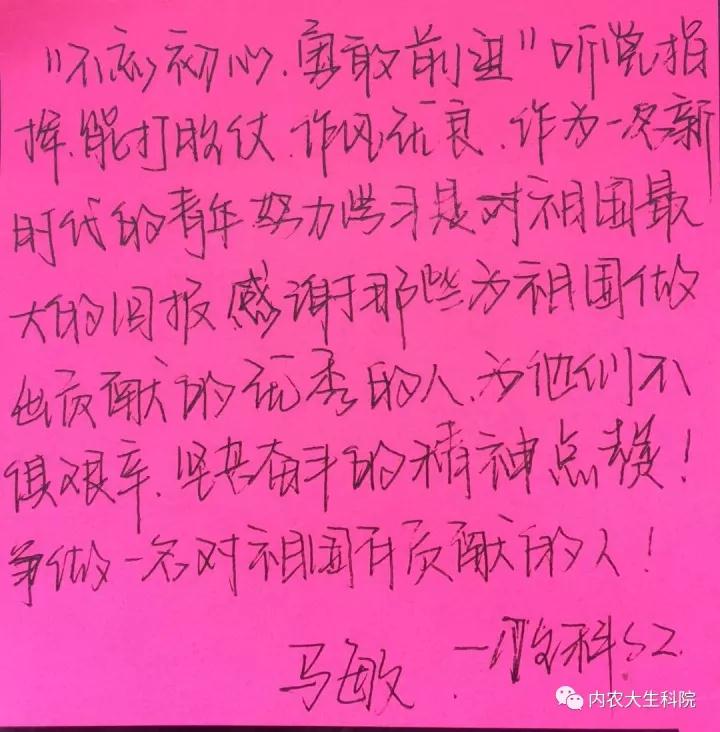 “不忘初心、勇敢前进”听党指
挥、能打胜仗、作风优良、作为一名新
时代的青年努力学习是对祖国最
大的回报感谢那些为祖国做
出贡献的优秀的人、为他们不
惧艰辛、坚其奋斗的精神点赞！
争做一名对祖国有贡献的人！
马敏 一牧科S2
内农大生科院